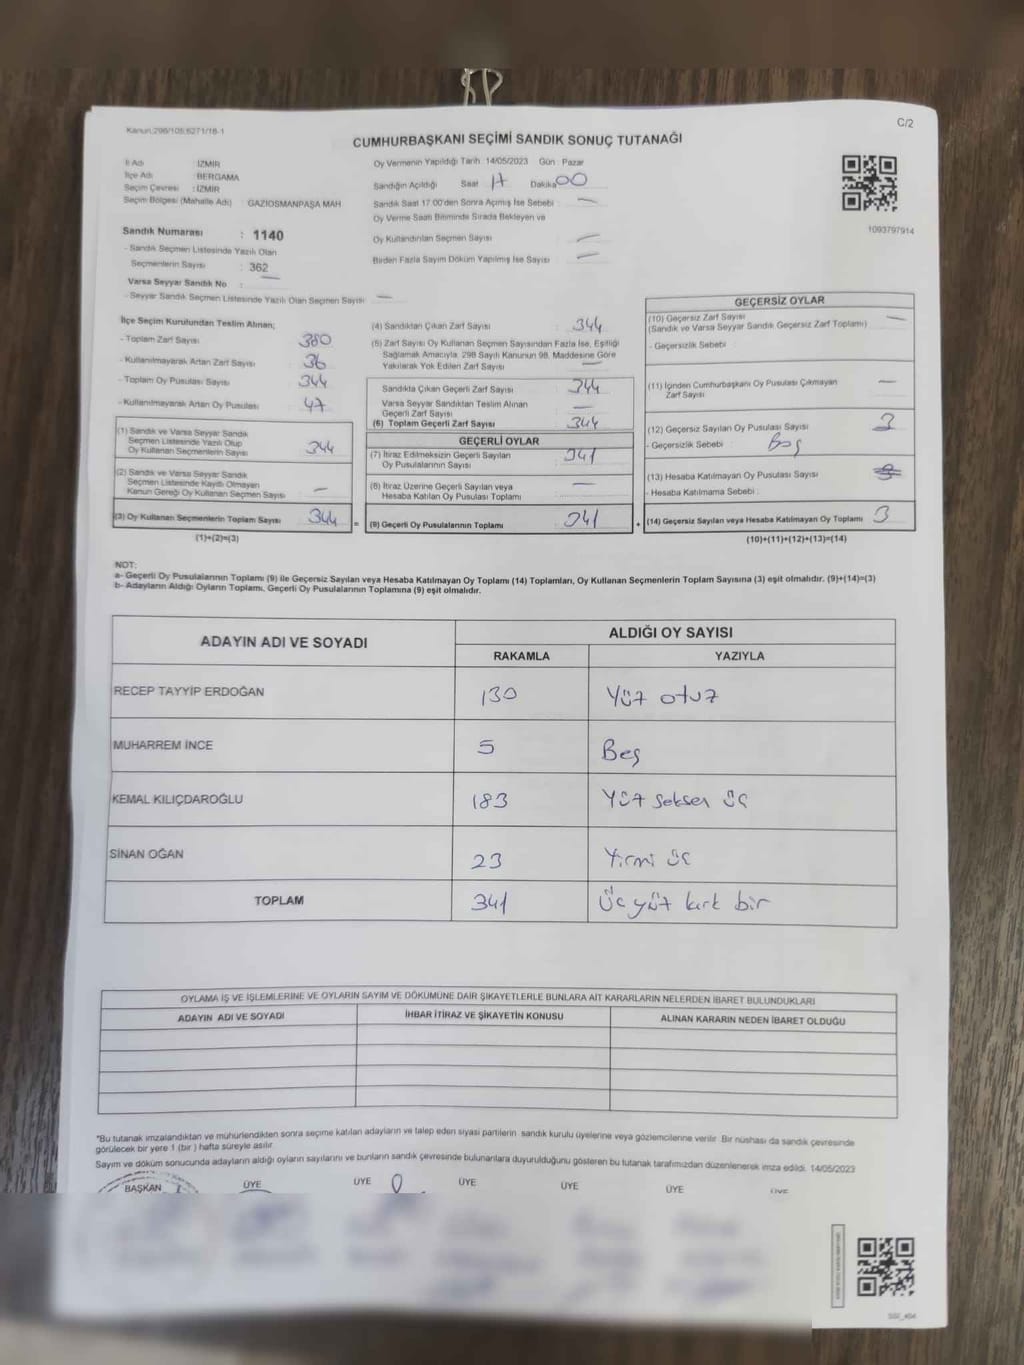 Kanun;298/105;6271/18-1
C/2
CUMHURBAŞKANI SEÇİMİ SANDIK SONUÇ TUTANAĞI
İl Adı : İZMİR
İlçe Adı : BERGAMA
Seçim Çevresi : İZMİR
Seçim Bölgesi (Mahalle Adı) : GAZİOSMANPAŞA MAH
Sandık Numarası : 1140
- Sandık Seçmen Listesinde Yazılı Olan
Seçmenlerin Sayısı : 362
Varsa Seyyar Sandık No : —
- Seyyar Sandık Seçmen Listesinde Yazılı Olan Seçmen Sayısı —
Oy Vermenin Yapıldığı Tarih 14/05/2023 Gün Pazar
Sandığın Açıldığı Saat 17 Dakika 00
Sandık Saat 17:00'den Sonra Açımış İse Sebebi : —
Oy Verme Saati Bitiminde Sırada Bekleyen ve
Oy Kullandırılan Seçmen Sayısı : —
Birden Fazla Sayım Döküm Yapılmış İse Sayısı : —
1093797914
İlçe Seçim Kurulundan Teslim Alınan;
- Toplam Zarf Sayısı 380
- Kullanılmayarak Artan Zarf Sayısı 36
- Toplam Oy Pusulası Sayısı 344
- Kullanılmayarak Artan Oy Pusulası 47
(1) Sandık ve Varsa Seyyar Sandık
Seçmen Listesinde Yazılı Olup
Oy Kullanan Seçmenlerin Sayısı 344
(2) Sandık ve Varsa Seyyar Sandık
Seçmen Listesinde Kayıtlı Olmayan
Kanun Gereği Oy Kullanan Seçmen Sayısı —
(3) Oy Kullanan Seçmenlerin Toplam Sayısı 344
(1)+(2)=(3)
(4) Sandıktan Çıkan Zarf Sayısı : 344
(5) Zarf Sayısı Oy Kullanan Seçmen Sayısından Fazla İse, Eşitliği
Sağlamak Amacıyla, 298 Sayılı Kanunun 98. Maddesine Göre
Yakılarak Yok Edilen Zarf Sayısı : —
Sandıkta Çıkan Geçerli Zarf Sayısı : 344
Varsa Seyyar Sandıktan Teslim Alınan
Geçerli Zarf Sayısı : —
(6) Toplam Geçerli Zarf Sayısı : 344
GEÇERLİ OYLAR
(7) İtiraz Edilmeksizin Geçerli Sayılan
Oy Pusulalarının Sayısı : 341
(8) İtiraz Üzerine Geçerli Sayılan veya
Hesaba Katılan Oy Pusulası Toplamı : —
= (9) Geçerli Oy Pusulalarının Toplamı : 341 +
GEÇERSİZ OYLAR
(10) Geçersiz Zarf Sayısı —
(Sandık ve Varsa Seyyar Sandık Geçersiz Zarf Toplamı)
- Geçersizlik Sebebi :
(11) İçinden Cumhurbaşkanı Oy Pusulası Çıkmayan —
Zarf Sayısı
(12) Geçersiz Sayılan Oy Pusulası Sayısı 3
- Geçersizlik Sebebi : Boş
(13) Hesaba Katılmayan Oy Pusulası Sayısı
- Hesaba Katılmama Sebebi :
(14) Geçersiz Sayılan veya Hesaba Katılmayan Oy Toplamı 3
(10)+(11)+(12)+(13)=(14)
NOT:
a- Geçerli Oy Pusulalarının Toplamı (9) ile Geçersiz Sayılan veya Hesaba Katılmayan Oy Toplamı (14) Toplamları, Oy Kullanan Seçmenlerin Toplam Sayısına (3) eşit olmalıdır. (9)+(14)=(3)
b- Adayların Aldığı Oyların Toplamı, Geçerli Oy Pusulalarının Toplamına (9) eşit olmalıdır.
ADAYIN ADI VE SOYADI ALDIĞI OY SAYISI
RAKAMLA YAZIYLA
RECEP TAYYİP ERDOĞAN 130 Yüz otuz
MUHARREM İNCE 5 Beş
KEMAL KILIÇDAROĞLU 183 Yüz seksen üç
SİNAN OĞAN 23 Yirmi üç
TOPLAM 341 Üç yüz kırk bir
OYLAMA İŞ VE İŞLEMLERİNE VE OYLARIN SAYIM VE DÖKÜMÜNE DAİR ŞİKAYETLERLE BUNLARA AİT KARARLARIN NELERDEN İBARET BULUNDUKLARI
ADAYIN ADI VE SOYADI İHBAR İTİRAZ VE ŞİKAYETİN KONUSU ALINAN KARARIN NEDEN İBARET OLDUĞU
*Bu tutanak imzalandıktan ve mühürlendikten sonra seçime katılan adayların ve talep eden siyasi partilerin sandık kurulu üyelerine veya gözlemcilerine verilir. Bir nüshası da sandık çevresinde
görülecek bir yere 1 (bir ) hafta süreyle asılır.
Sayım ve döküm sonucunda adayların aldığı oyların sayılarını ve bunların sandık çevresinde bulunanlara duyurulduğunu gösteren bu tutanak tarafımızdan düzenlenerek imza edildi. 14/05/2023
BAŞKAN ÜYE ÜYE ÜYE ÜYE ÜYE ÜYE